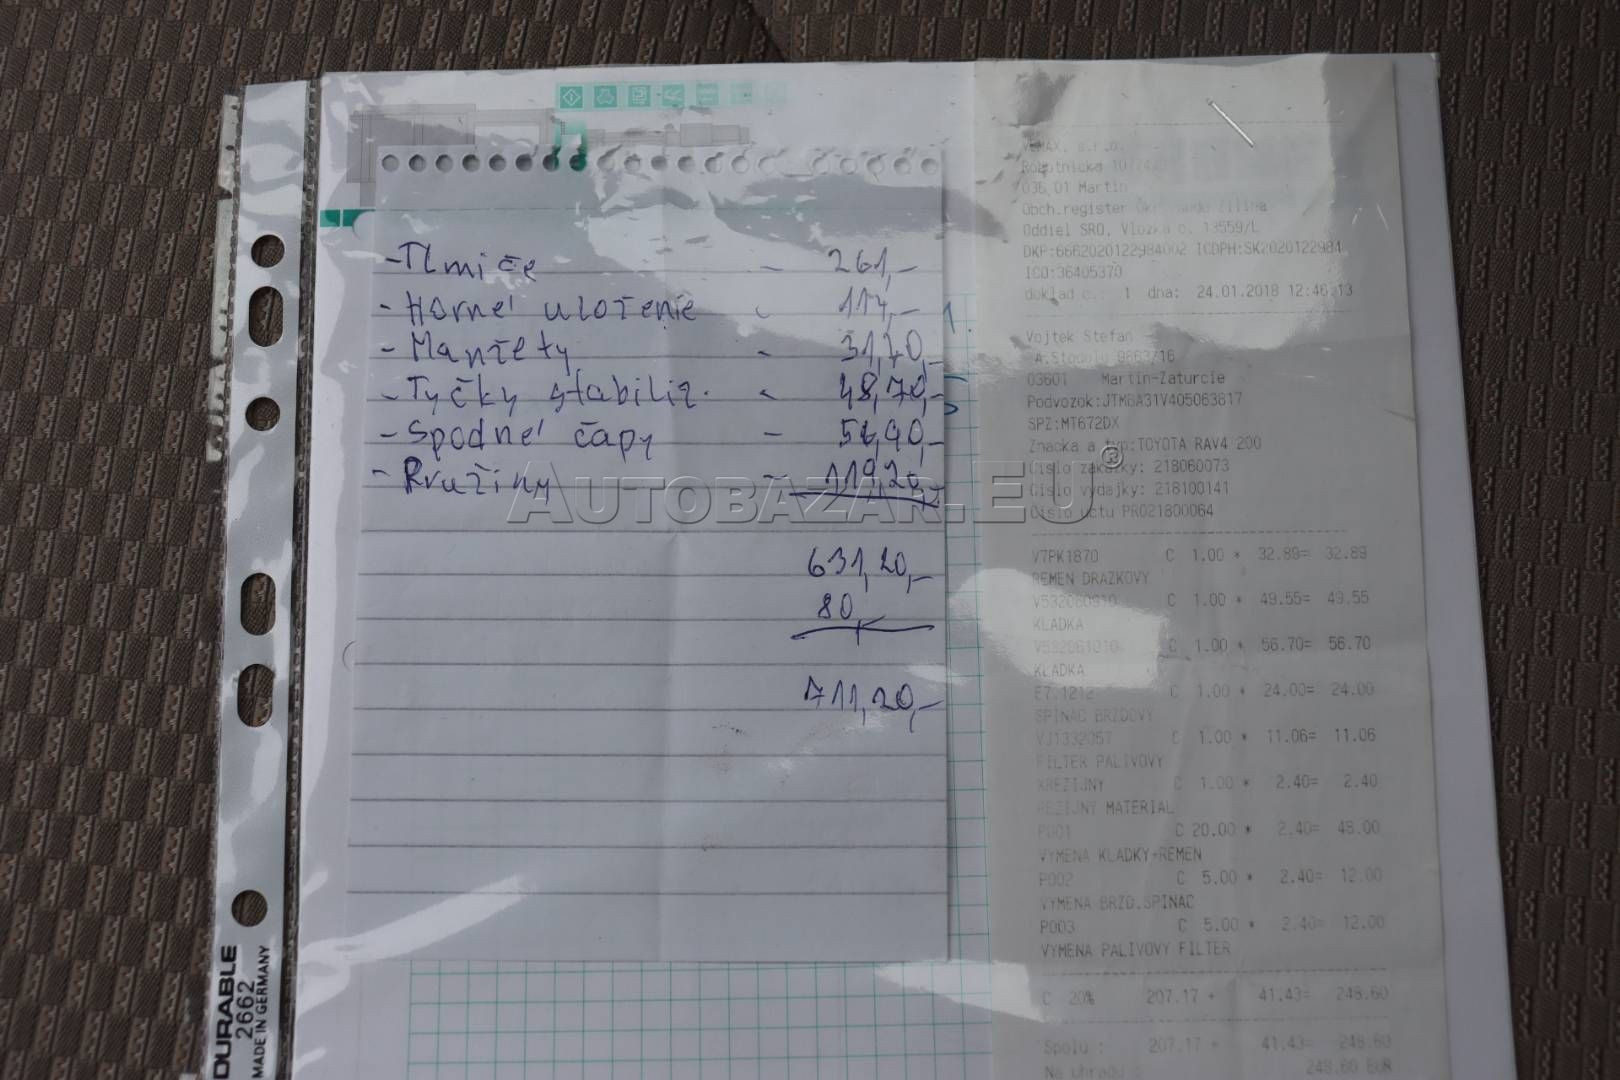 - Tlmiče - 261,-
- Horné uloženie - 114,-
- Manžety - 31,70,-
- Tyčky stabiliz. - 48,70,-
- Spodné čapy - 56,40,-
- Pružiny - 119,20,-
631,20,-
80,-
711,20,-
DURABLE
2662
MADE IN GERMANY
AUTOBAZAR.EU®
s.r.o.
Robotnicka
036 01 Martin
Obch.register Zilina
Oddiel SRO, Vlozka c. 13559/L
DKP:6662020122984002 ICDPH:SK2020122984
ICO:36405370
doklad c.: 1 dna: 24.01.2018 12:46:13
Vojtek Stefan
A.Stodolu 9863/16
03601 Martin-Zaturcie
Podvozok:JTMBA31V405063817
SPZ:MT672DX
Znacka a typ:TOYOTA RAV4 200
Cislo zakazky: 218060073
Cislo vydajky: 218100141
Cislo uctu PR021800064
V7PK1870 C 1.00 * 32.89= 32.89
REMEN DRAZKOVY
V532060910 C 1.00 * 49.55= 49.55
KLADKA
V532061010 C 1.00 * 56.70= 56.70
KLADKA
E7.1212 C 1.00 * 24.00= 24.00
SPINAC BRZDOVY
VJ1332057 C 1.00 * 11.06= 11.06
FILTER PALIVOVY
XREZIJNY C 1.00 * 2.40= 2.40
REZIJNY MATERIAL
P001 C 20.00 * 2.40= 48.00
VYMENA KLADKY+REMEN
P002 C 5.00 * 2.40= 12.00
VYMENA BRZD.SPINAC
P003 C 5.00 * 2.40= 12.00
VYMENA PALIVOVY FILTER
C 20% 207.17 + 41.43= 248.60
Spolu : 207.17 + 41.43= 248.60
Na uhradu : 248.60 EUR